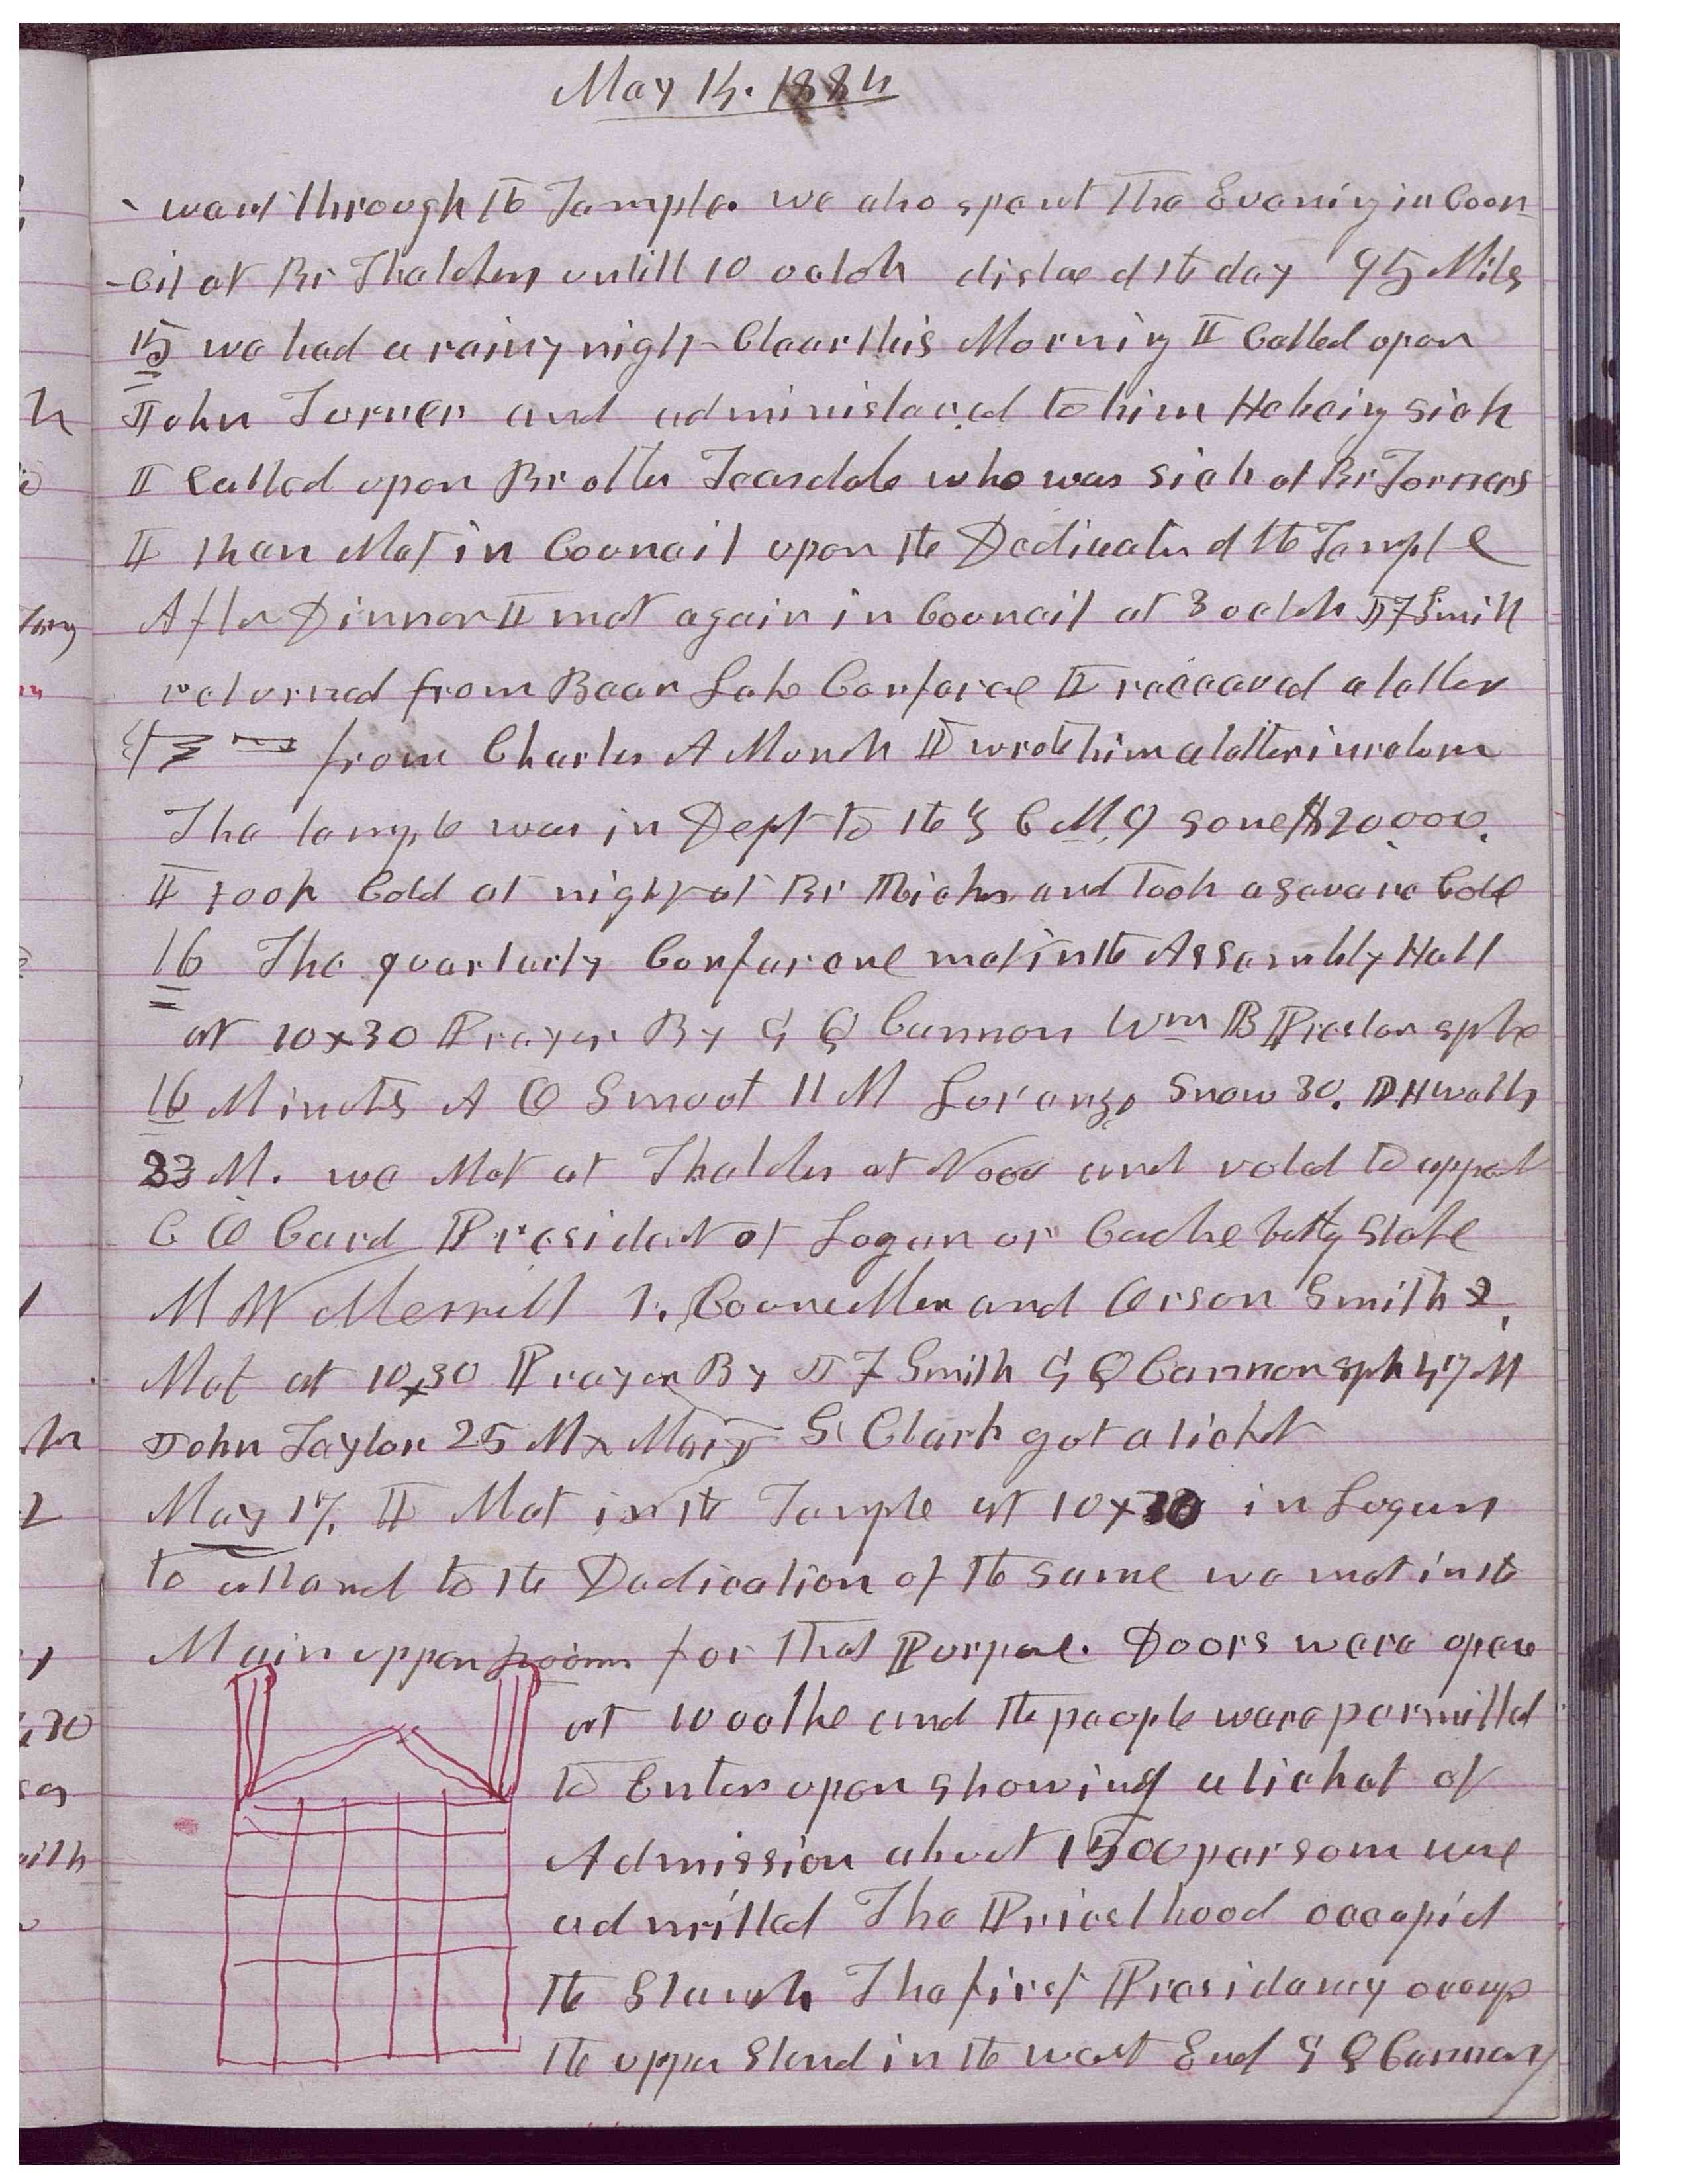 May 14. 1884
went through the Temple. we also spent the Evening in Coun
-cil at Br Thatchers untill 10 oclok distance of the day 95 Miles
15 we had a rainy night Clear this Morning I Called upon
John Turner and administered to him He being sick
I Called upon Brother Teasdale who was sick at Br Turners
I then Met in Council upon the Dedication of the Temple
After Dinner I met again in Council at 3 oclok J F Smith
returned from Bear Lake Conference I receeved a letter
from Charles A Monch I wrote him a letter in return
The temple was in Dept to the Z C M I some $20,000.
I took Cold at night at Br Ricks and took a severe Cold
16 The quarterly Conference met in the Assembly Hall
at 10x30 Prayer By G Q Cannon Wm B Preston spke
16 Minuts A O Smoot 11 M Lorenzo Snow 30. D H Wells
33 M. we Met at Thatcher at Noon and voted to appoint
C O Card President of Logan or Cache Stake
M W Merrill 1. Councellor and Orson Smith 2,
Met at 10x30 Prayer By J F Smith G Q Cannon spk 47 M
John Taylor 25 M x Mary S Clark got a ticket
May 17, I Met in the Temple at 10x30 in Logan
to attend to the Dedication of the same we met in the
Main upper room for that Purpose. Doors were open
at 10 oclke and the people were permitted
to Enter upon showing a ticket of
Admission about 1500 persons were
admitted The Priesthood occupid
the Stands The first Presidency occup
the upper Stand in the west End G Q Cannon